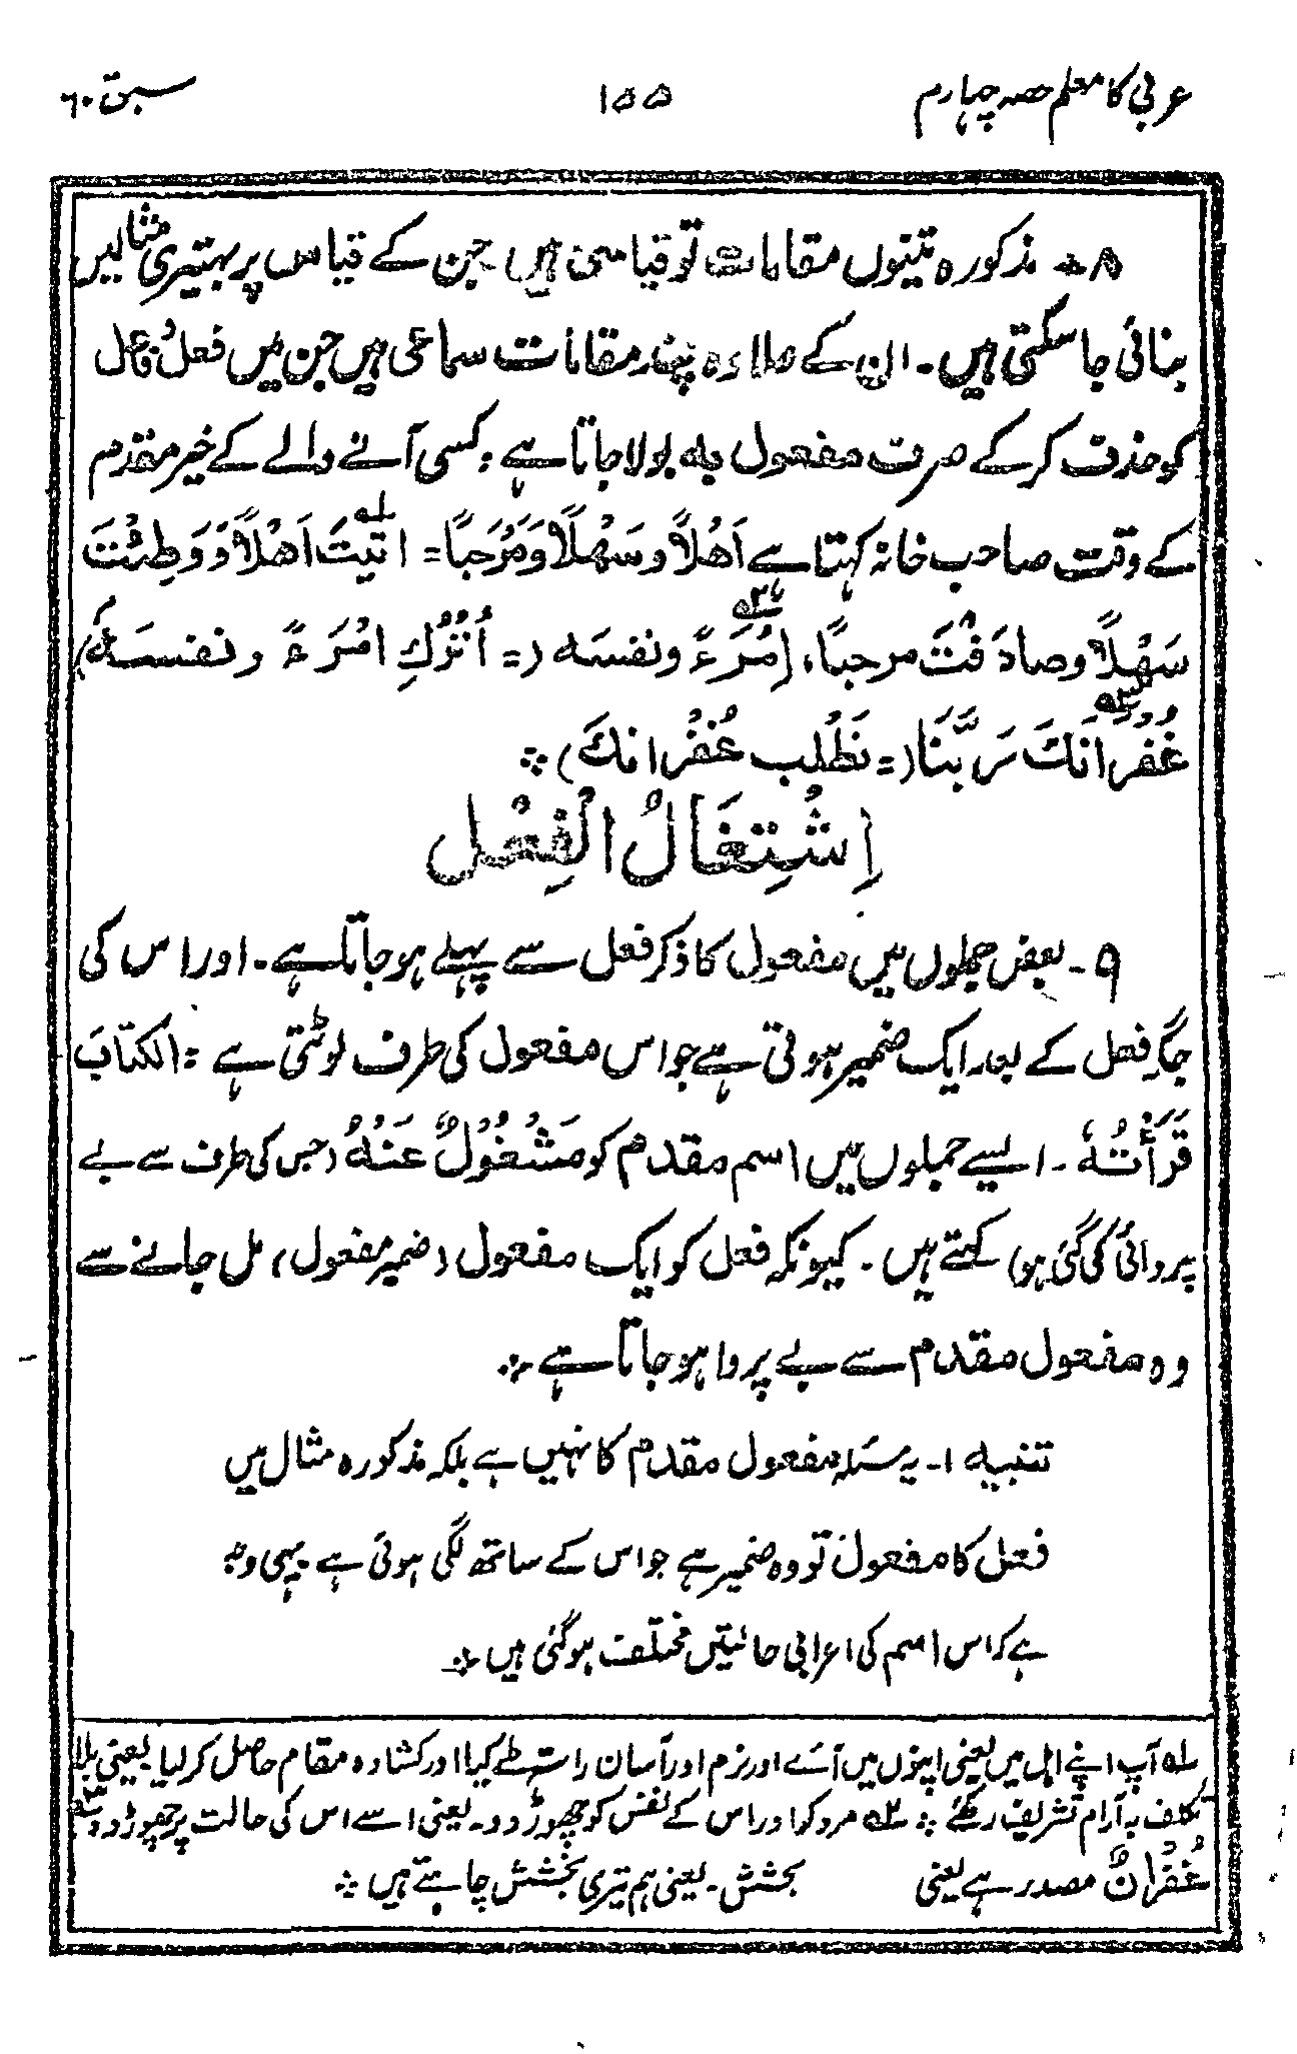 عربی کا معلم حصہ چہارم ۱۵۵ سبق ۶۰
۸۔ مذکورہ تینوں مقامات تو قیاسی ہیں جن کے قیاس پر بہتیری مثالیں
بنائی جا سکتی ہیں۔ ان کے علاوہ چند مقامات سماعی ہیں جن میں فعل و فاعل
کو حذف کر کے صرف مفعول بہ بولا جاتا ہے: کسی آنے والے کے خیر مقدم
کے وقت صاحب خانہ کہتا ہے اَهْلًا وسَهْلًا وَمَرْحَبًا = اتَيْتَ اَهْلًا وَوَطِئْتَ
سَهْلًا وصادَفْتَ مرحبًا، اِمْرَءً ونفسَه (= اُتْرُكِ امْرَءً ونفسَهٗ)
غُفْرَانَكَ رَبَّنَا (= نَطْلُب غُفْرانكَ) ❖
اِشْتِغَالُ الْفِعْل
۹۔ بعض جملوں میں مفعول کا ذکر فعل سے پہلے ہو جاتا ہے۔ اور اس کی
جگہ فعل کے بعد ایک ضمیر ہوتی ہے جو اس مفعول کی طرف لوٹتی ہے: الکتابَ
قَرَأْتُهٗ۔ ایسے جملوں میں اسم مقدم کو مَشْغُوْلٌ عَنْهُ (جس کی طرف سے بے
پروائی کی گئی ہو) کہتے ہیں۔ کیونکہ فعل کو ایک مفعول (ضمیر مفعول) مل جانے سے
وہ مفعول مقدم سے بے پروا ہو جاتا ہے ❖
تنبیہ ۱۔ یہ مسئلہ مفعول مقدم کا نہیں ہے بلکہ مذکورہ مثال میں
فعل کا مفعول تو وہ ضمیر ہے جو اس کے ساتھ لگی ہوئی ہے۔ یہی وجہ
ہے کہ اس اسم کی اعرابی حالتیں مختلف ہو گئی ہیں ❖
۱ے آپ اپنے اہل میں یعنی اپنوں میں آئے اور نرم اور آسان راستہ طے کیا اور کشادہ مقام حاصل کر لیا یعنی بلا
تکلف بہ آرام تشریف رکھئے ❖ ۲ے مرد کو اور اس کے نفس کو چھوڑ دو۔ یعنی اسے اس کی حالت پر چھوڑ دو ۳ے
غُفْرَانٌ مصدر ہے یعنی بخشش۔ یعنی ہم تیری بخشش چاہتے ہیں ❖